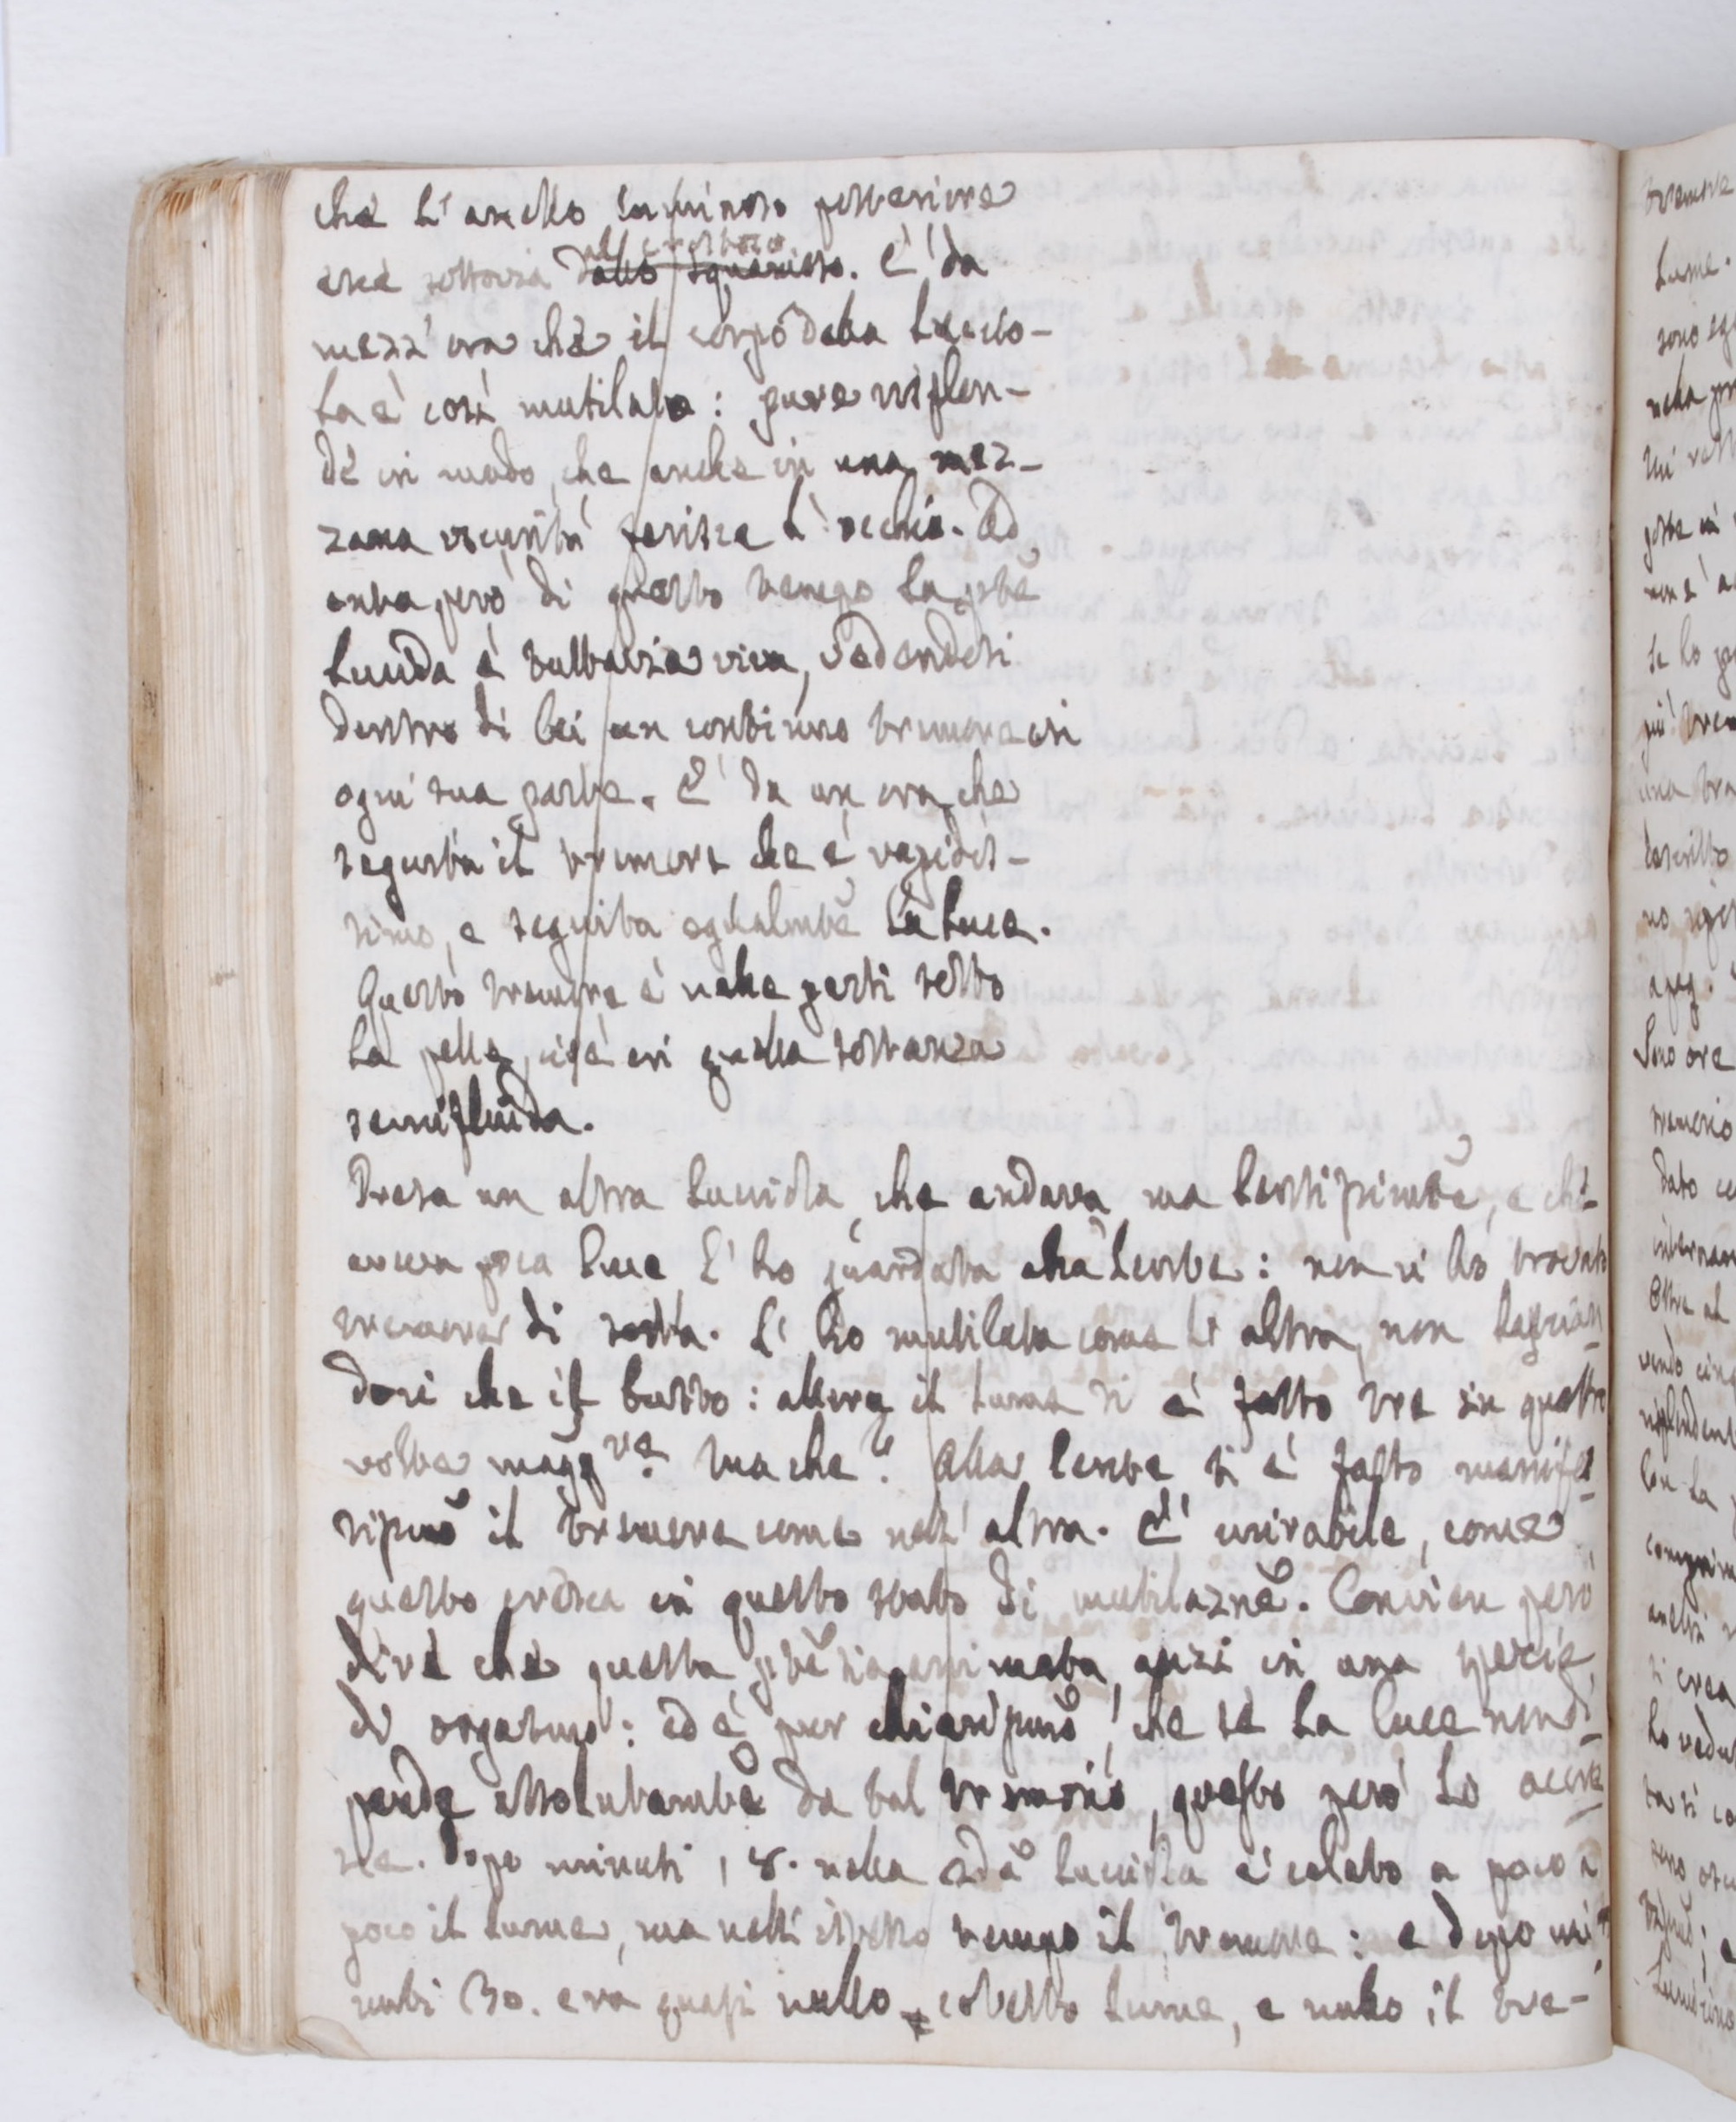 che l'anello luminoso posteriore
era tuttavia dallo squarcio. È da
mezz'ora che il corpo della luccio-
la è così mutilato: pure risplen-
de in modo, che anche in una mez-
zana oscurità ferisce l'occhio. Ad
onta però di questo tempo la pte
lucida è tuttavia viva, vedendosi
dentro di lei un continuo tremore in
ogni sua parte. È da un ora che
seguita il tremore che è rapidis-
simo, e seguita egualmte la luce.
Questo tremore è nelle parti sotto
la pelle, cioè in quella sostanza
semifluida.
Presa un altra lucciola, che andava ma lentissimte, e
aveva poca luce l'ho guardata alla lente: non vi ho trovato
tremore di sorta. L'ho mutilata come l'altra, non lascian
dovi che il busto: allora il lume si è fatto tre in quattro
volte maggre. Ma che? Alla lente si è fatto manife
sissmo il tremore come nell'altra. È mirabile, come
questo cresca in questo stato di mutilazne. Convien però
dire che questa pte sia animata, anzi in una specie
di orgasmo: ed è pur chiarissmo, che se la luce non di
pende assolutamte da tal tremorio, questo però lo accre
sce. Dopo minuti 18. nella da lucciola è calato a poco a
poco il lume, ma nell'istesso tempo il tremore: e dopo mi
nuti 30. era quasi nullo cotesto lume, e nullo il tre-